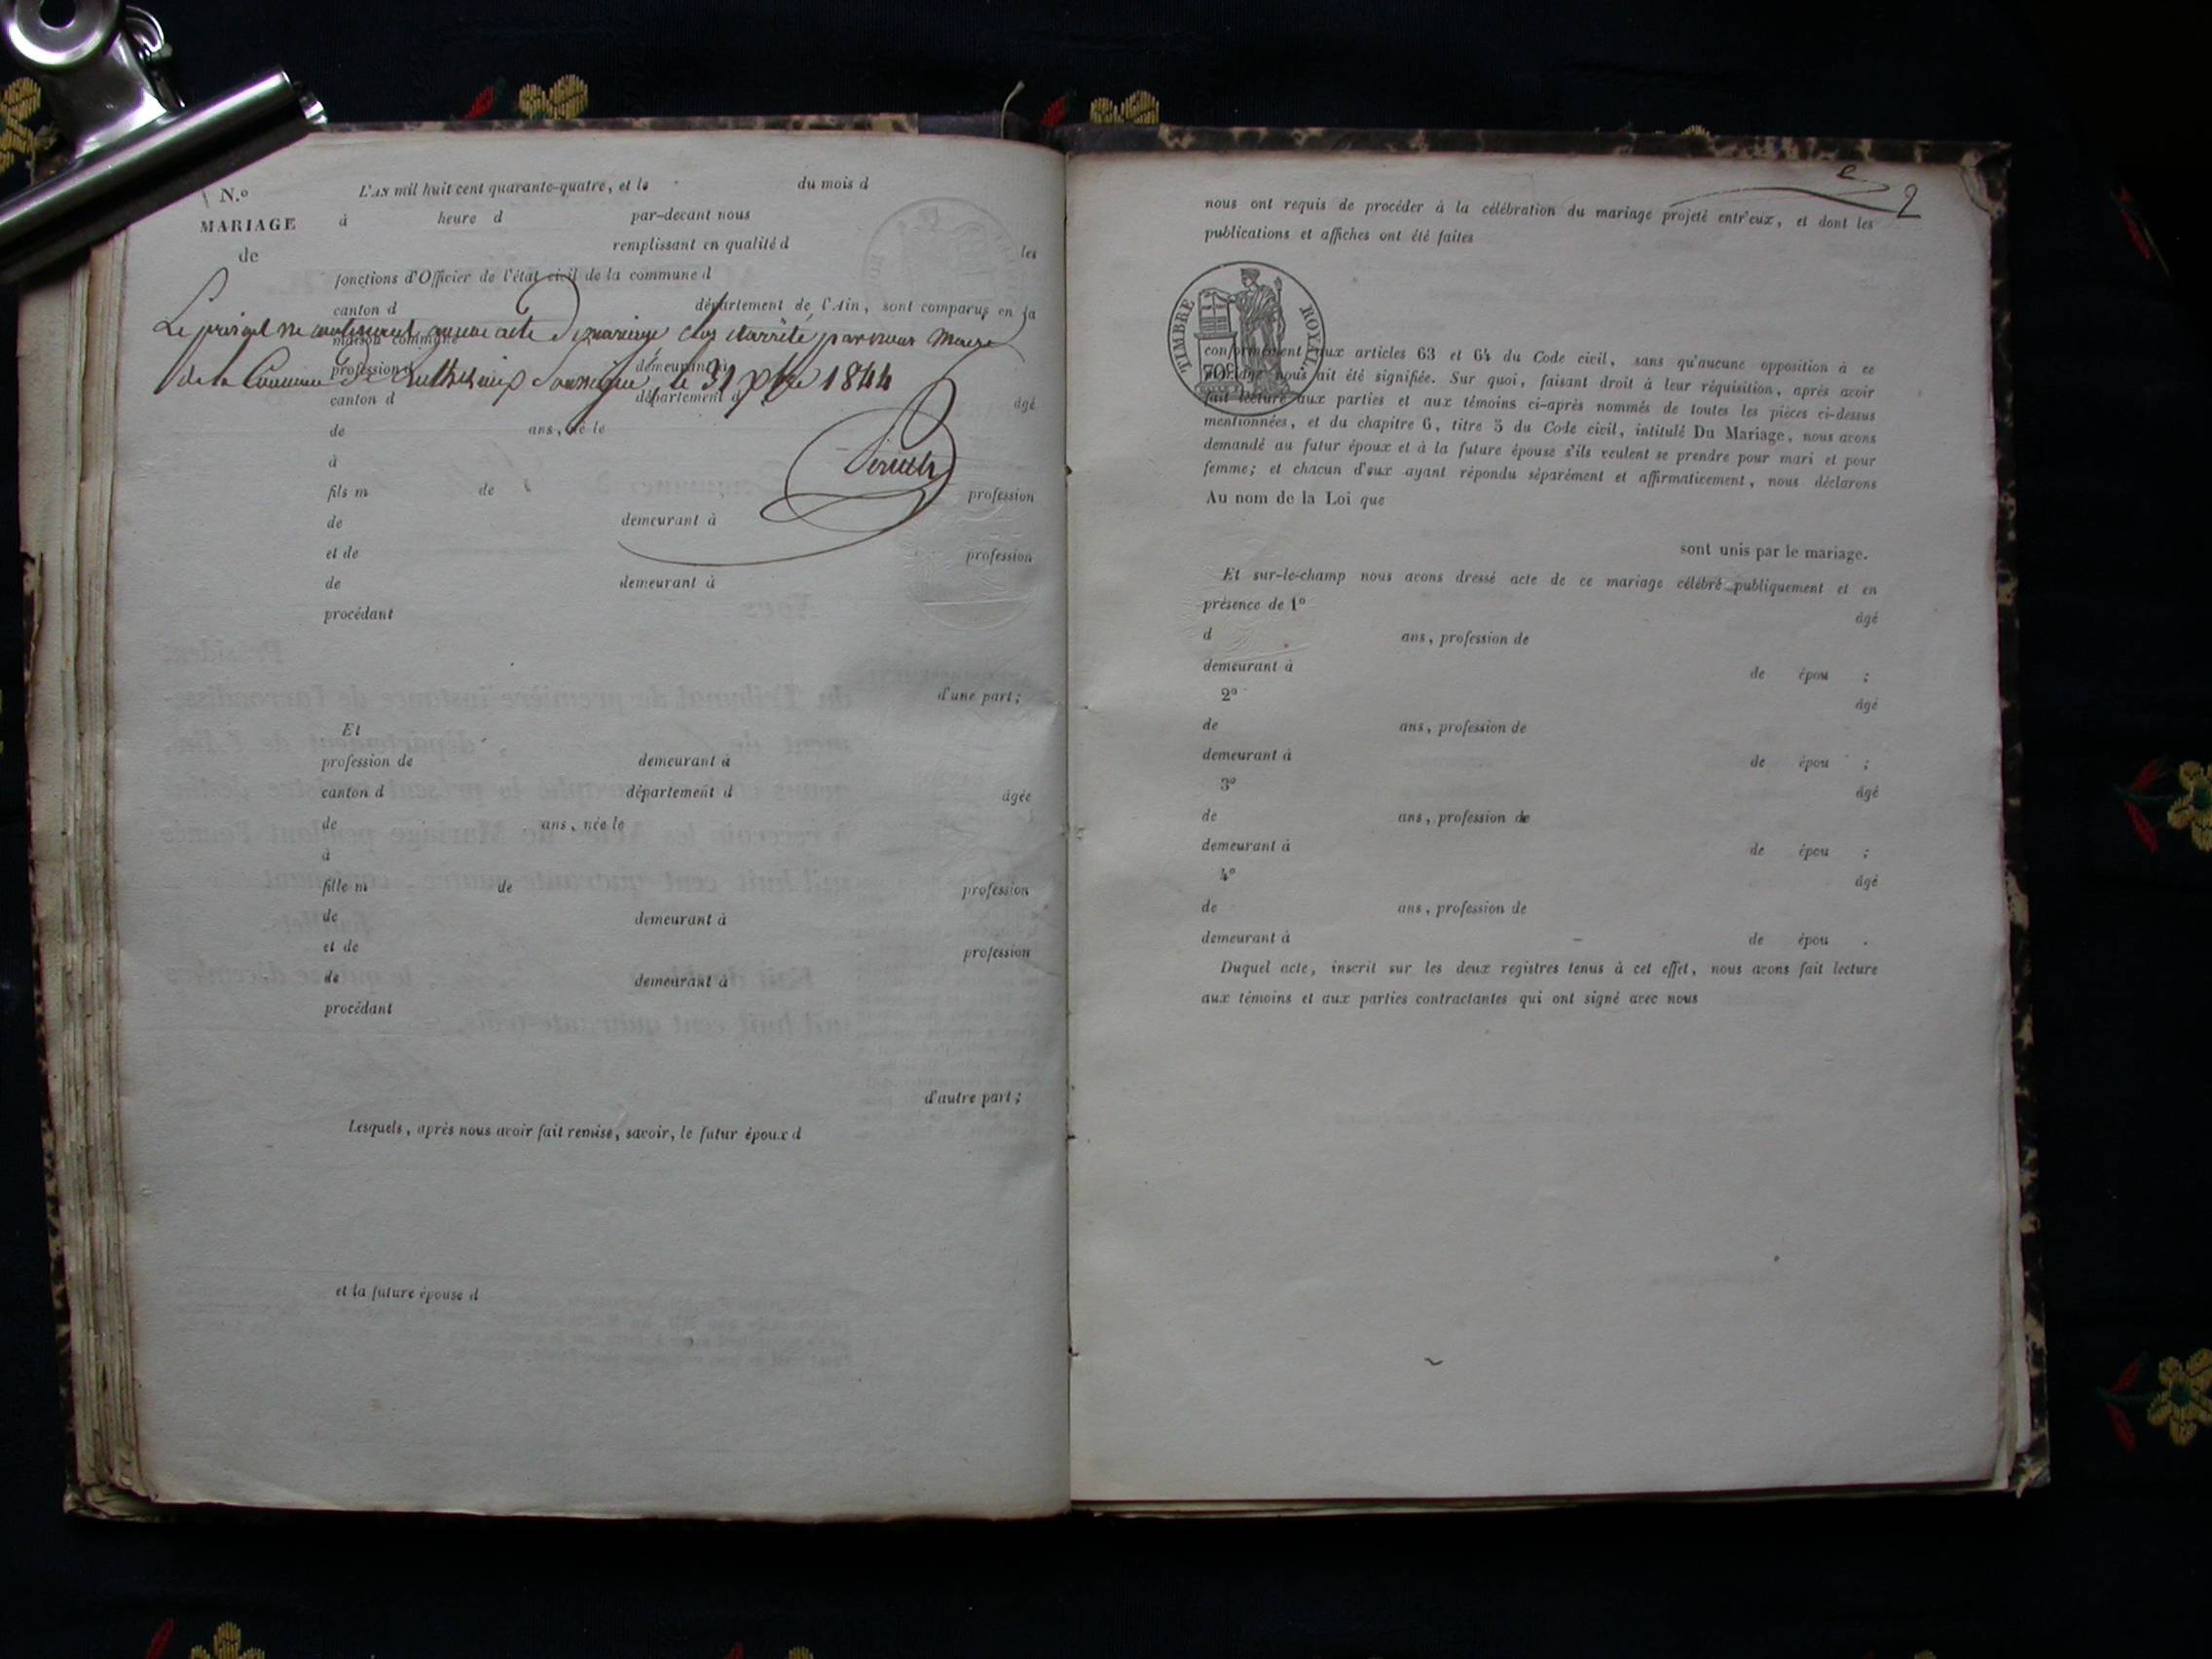 N.º
MARIAGE
de
L'AN mil huit cent quarante-quatre, et le du mois d
à heure d par-devant nous
remplissant en qualité d les
fonctions d'Officier de l'état civil de la commune d
canton d département de l'Ain, sont comparus en la
Le présent ne contenant aucun acte de mariage clos et arrêté par nous Maire
maison commune
profession d demeurant à
de la Commune de le 31 Xbre 1844
canton d département d âgé
de ans, né le
à
fils m de profession
de demeurant à
et de profession
de demeurant à
procédant
d'une part;
Et
profession de demeurant à
canton d département d âgée
de ans, née le
à
fille m de profession
de demeurant à
et de profession
de demeurant à
procédant
d'autre part;
Lesquels, après nous avoir fait remise, savoir, le futur époux d
et la future épouse d
2
nous ont requis de procéder à la célébration du mariage projeté entr'eux, et dont les
publications et affiches ont été faites
TIMBRE ROYAL
conformément aux articles 63 et 64 du Code civil, sans qu'aucune opposition à ce
mariage nous ait été signifiée. Sur quoi, faisant droit à leur réquisition, après avoir
fait lecture aux parties et aux témoins ci-après nommés de toutes les pièces ci-dessus
mentionnées, et du chapitre 6, titre 5 du Code civil, intitulé Du Mariage, nous avons
demandé au futur époux et à la future épouse s'ils veulent se prendre pour mari et pour
femme; et chacun d'eux ayant répondu séparément et affirmativement, nous déclarons
Au nom de la Loi que
sont unis par le mariage.
Et sur-le-champ nous avons dressé acte de ce mariage célébré publiquement et en
présence de 1º âgé
d ans, profession de
demeurant à de épou ;
2º âgé
de ans, profession de
demeurant à de épou ;
3º âgé
de ans, profession de
demeurant à de épou ;
4º âgé
de ans, profession de
demeurant à de épou .
Duquel acte, inscrit sur les deux registres tenus à cet effet, nous avons fait lecture
aux témoins et aux parties contractantes qui ont signé avec nous